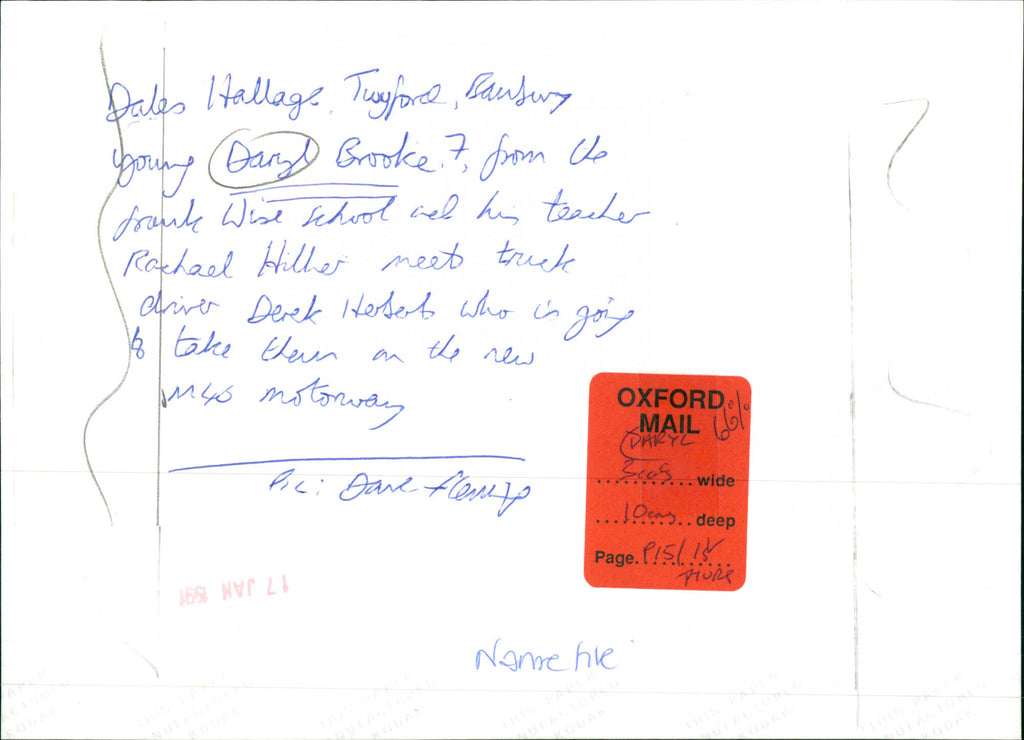 Dales Hallage, Twyford, Banbury
young Daryl Brooke, 7, from the
Frank Wise School and his teacher
Rachael Hillier meets truck
driver Derek Herberts who is going
to take them on the new
M40 motorway
Pic: Dave Fleming
OXFORD
MAIL
66%
DARYL
3cols wide
10cms deep
Page. P15/
THURS
17 JAN 1991
Name file
THIS PAPER
MANUFACTURED
BY KODAK